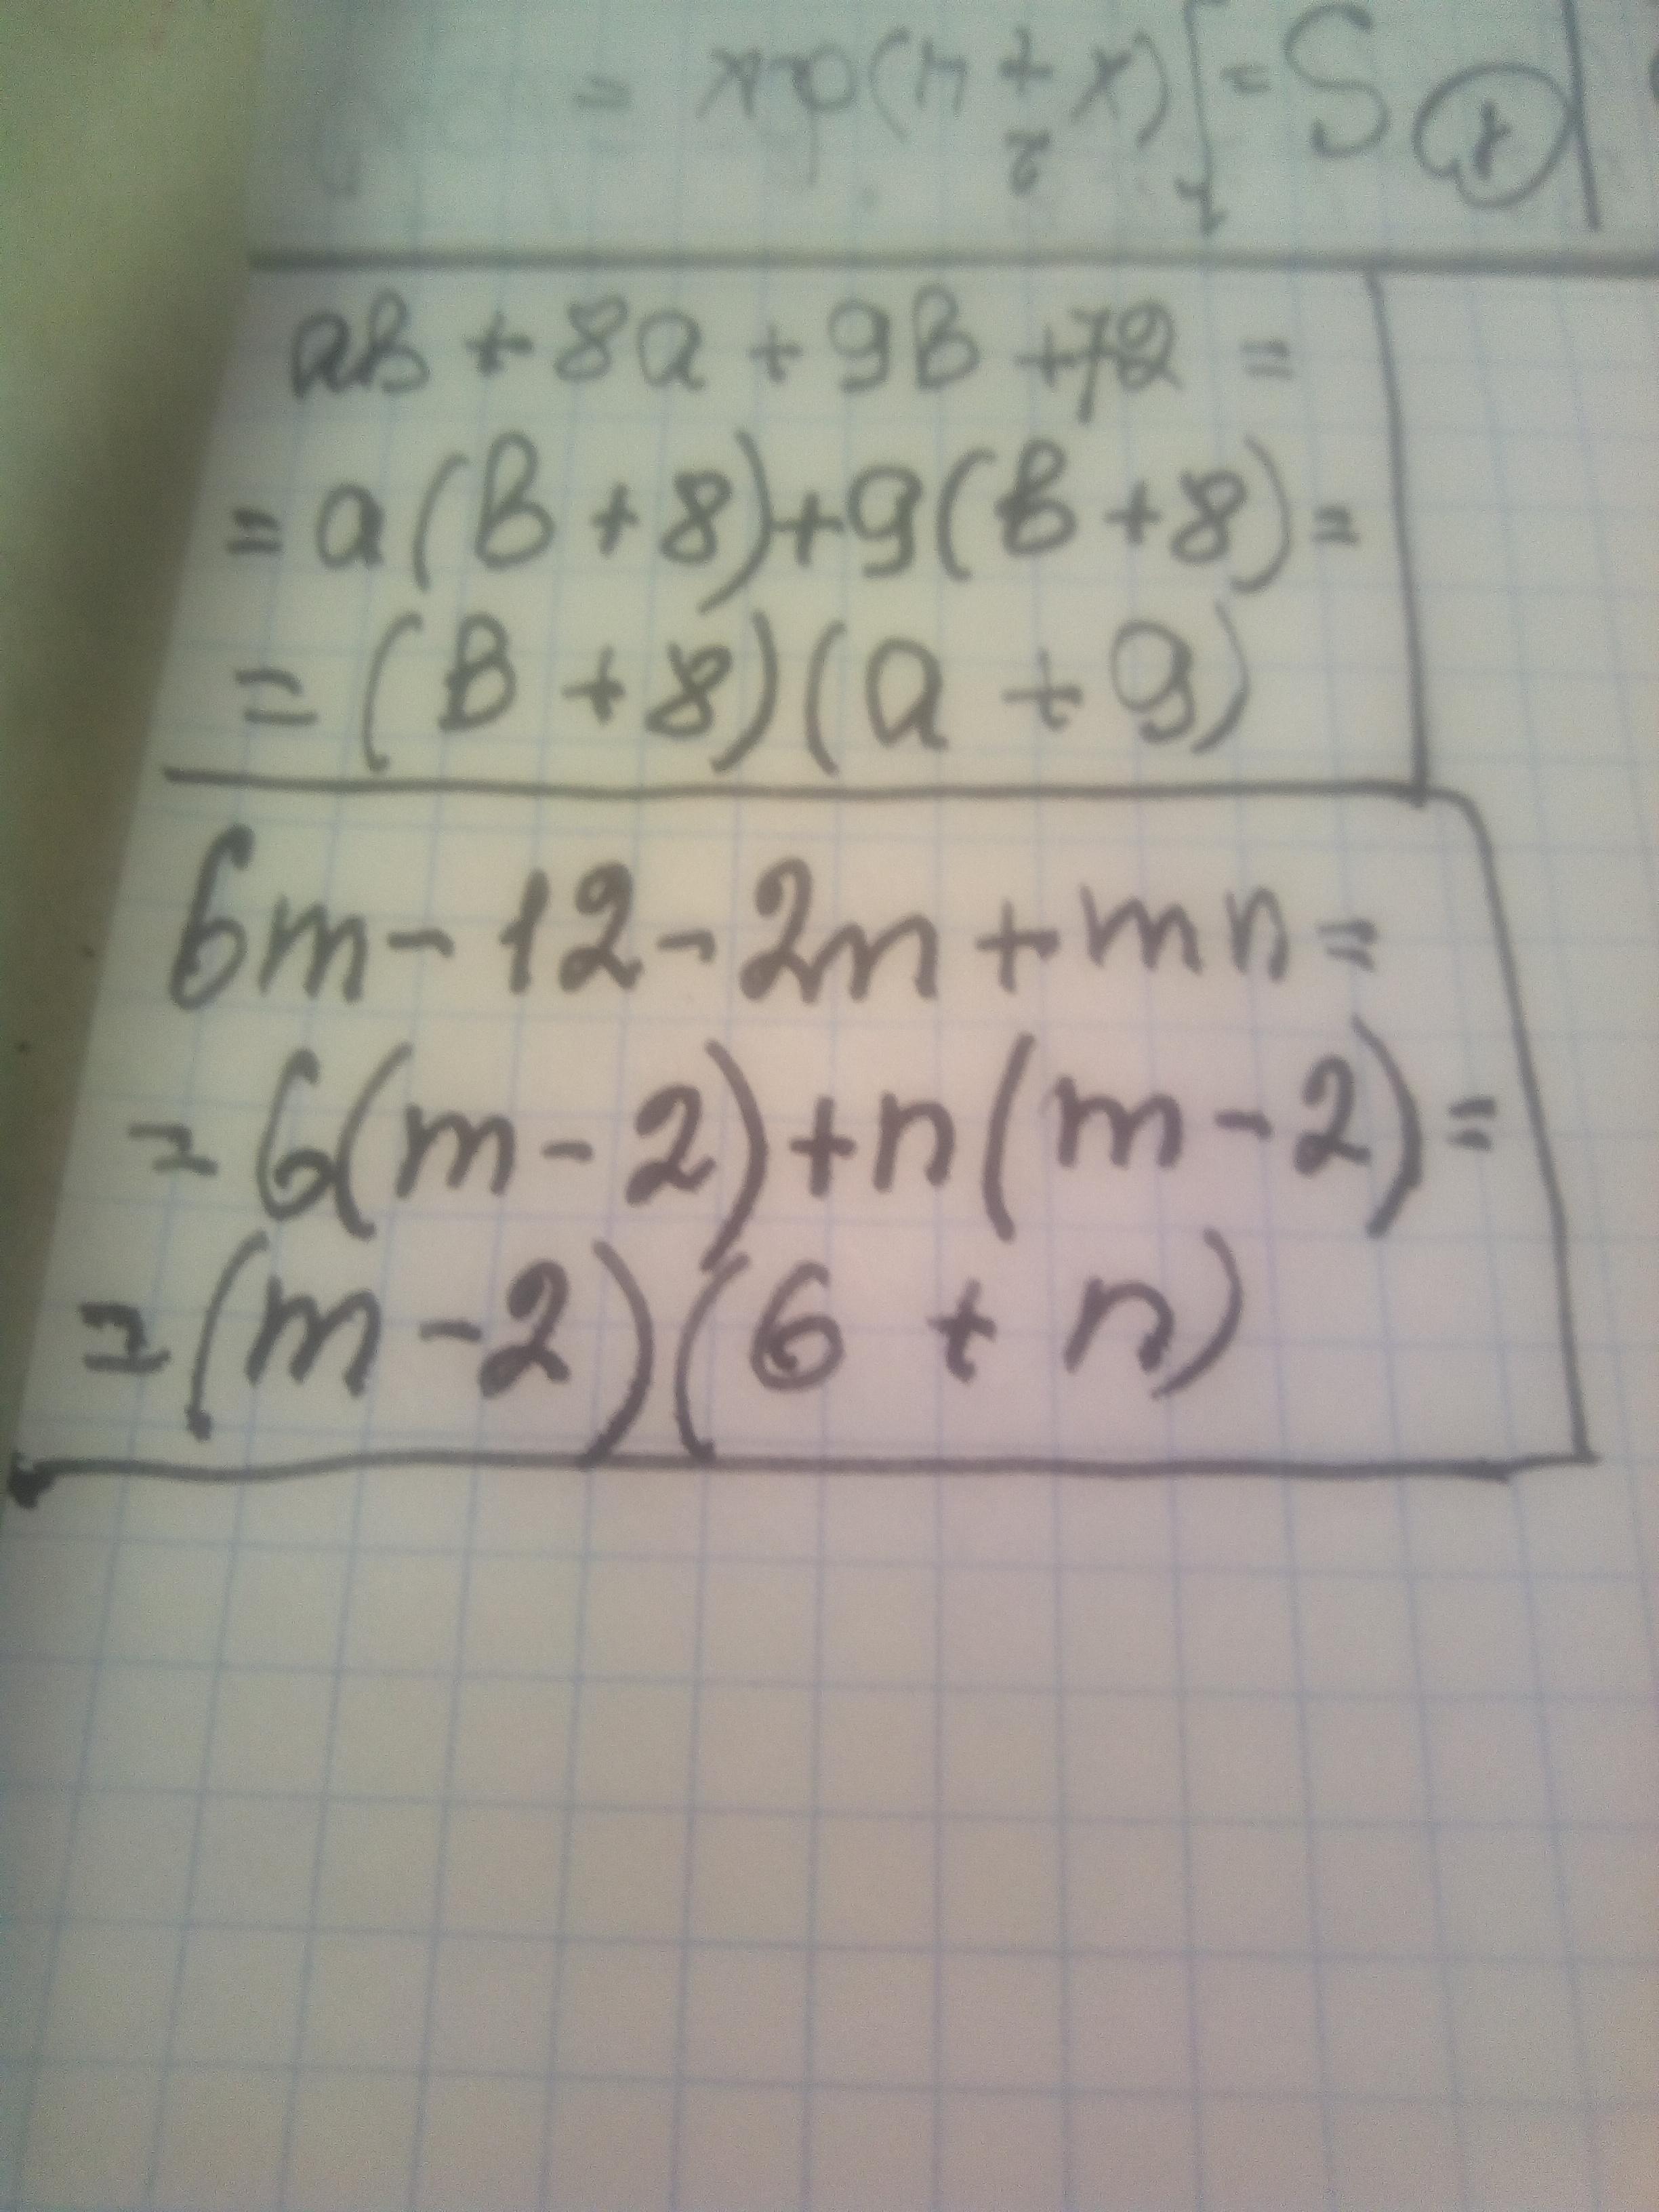 ab + 8a + 9b + 72 =
= a(b + 8) + 9(b + 8) =
= (b + 8)(a + 9)
6m - 12 - 2n + mn =
= 6(m - 2) + n(m - 2) =
= (m - 2)(6 + n)